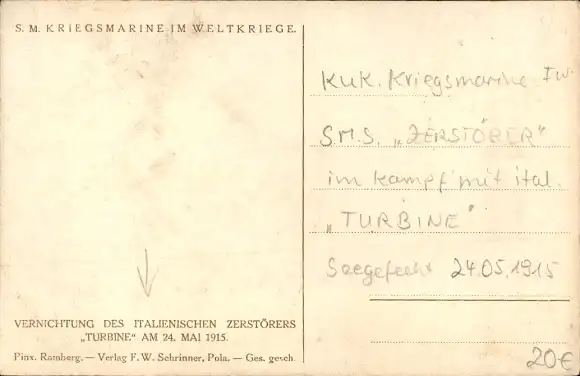 S. M. KRIEGSMARINE IM WELTKRIEGE.
KUK. Kriegsmarine I W.
S.M.S. „ZERSTÖRER"
im Kampf mit ital.
„TURBINE"
Seegefecht 24.05.1915
VERNICHTUNG DES ITALIENISCHEN ZERSTÖRERS
„TURBINE" AM 24. MAI 1915.
Pinx. Ramberg. — Verlag F. W. Schrinner, Pola. — Ges. gesch.
20€